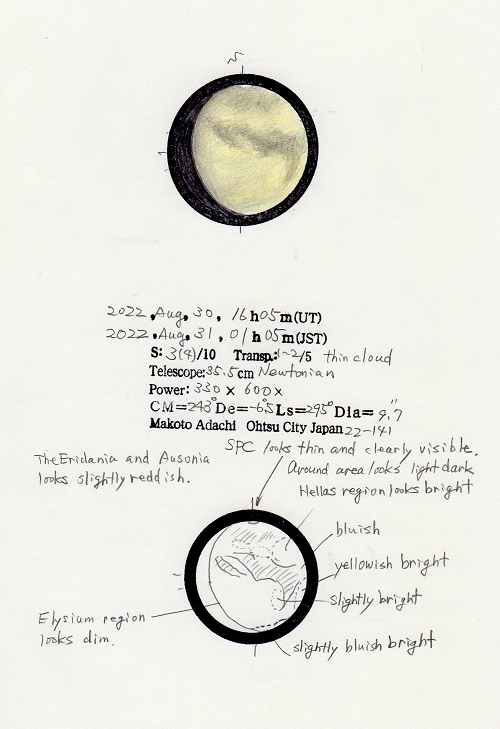 2022, Aug, 30, 16h05m(UT)
2022, Aug, 31, 01h05m(JST)
S: 3(4)/10 Transp.:1~2/5 thin cloud
Telescope:35.5cm Newtonian
Power: 330× 600×
CM=243° De=-6.5 Ls=295° Dia= 9.7"
Makoto Adachi Ohtsu City Japan 22-141
SPC looks thin and clearly visible.
The Eridania and Ausonia
looks slightly reddish.
Around area looks light dark
Hellas region looks bright
bluish
yellowish bright
slightly bright
Elysium region
looks dim.
slightly bluish bright